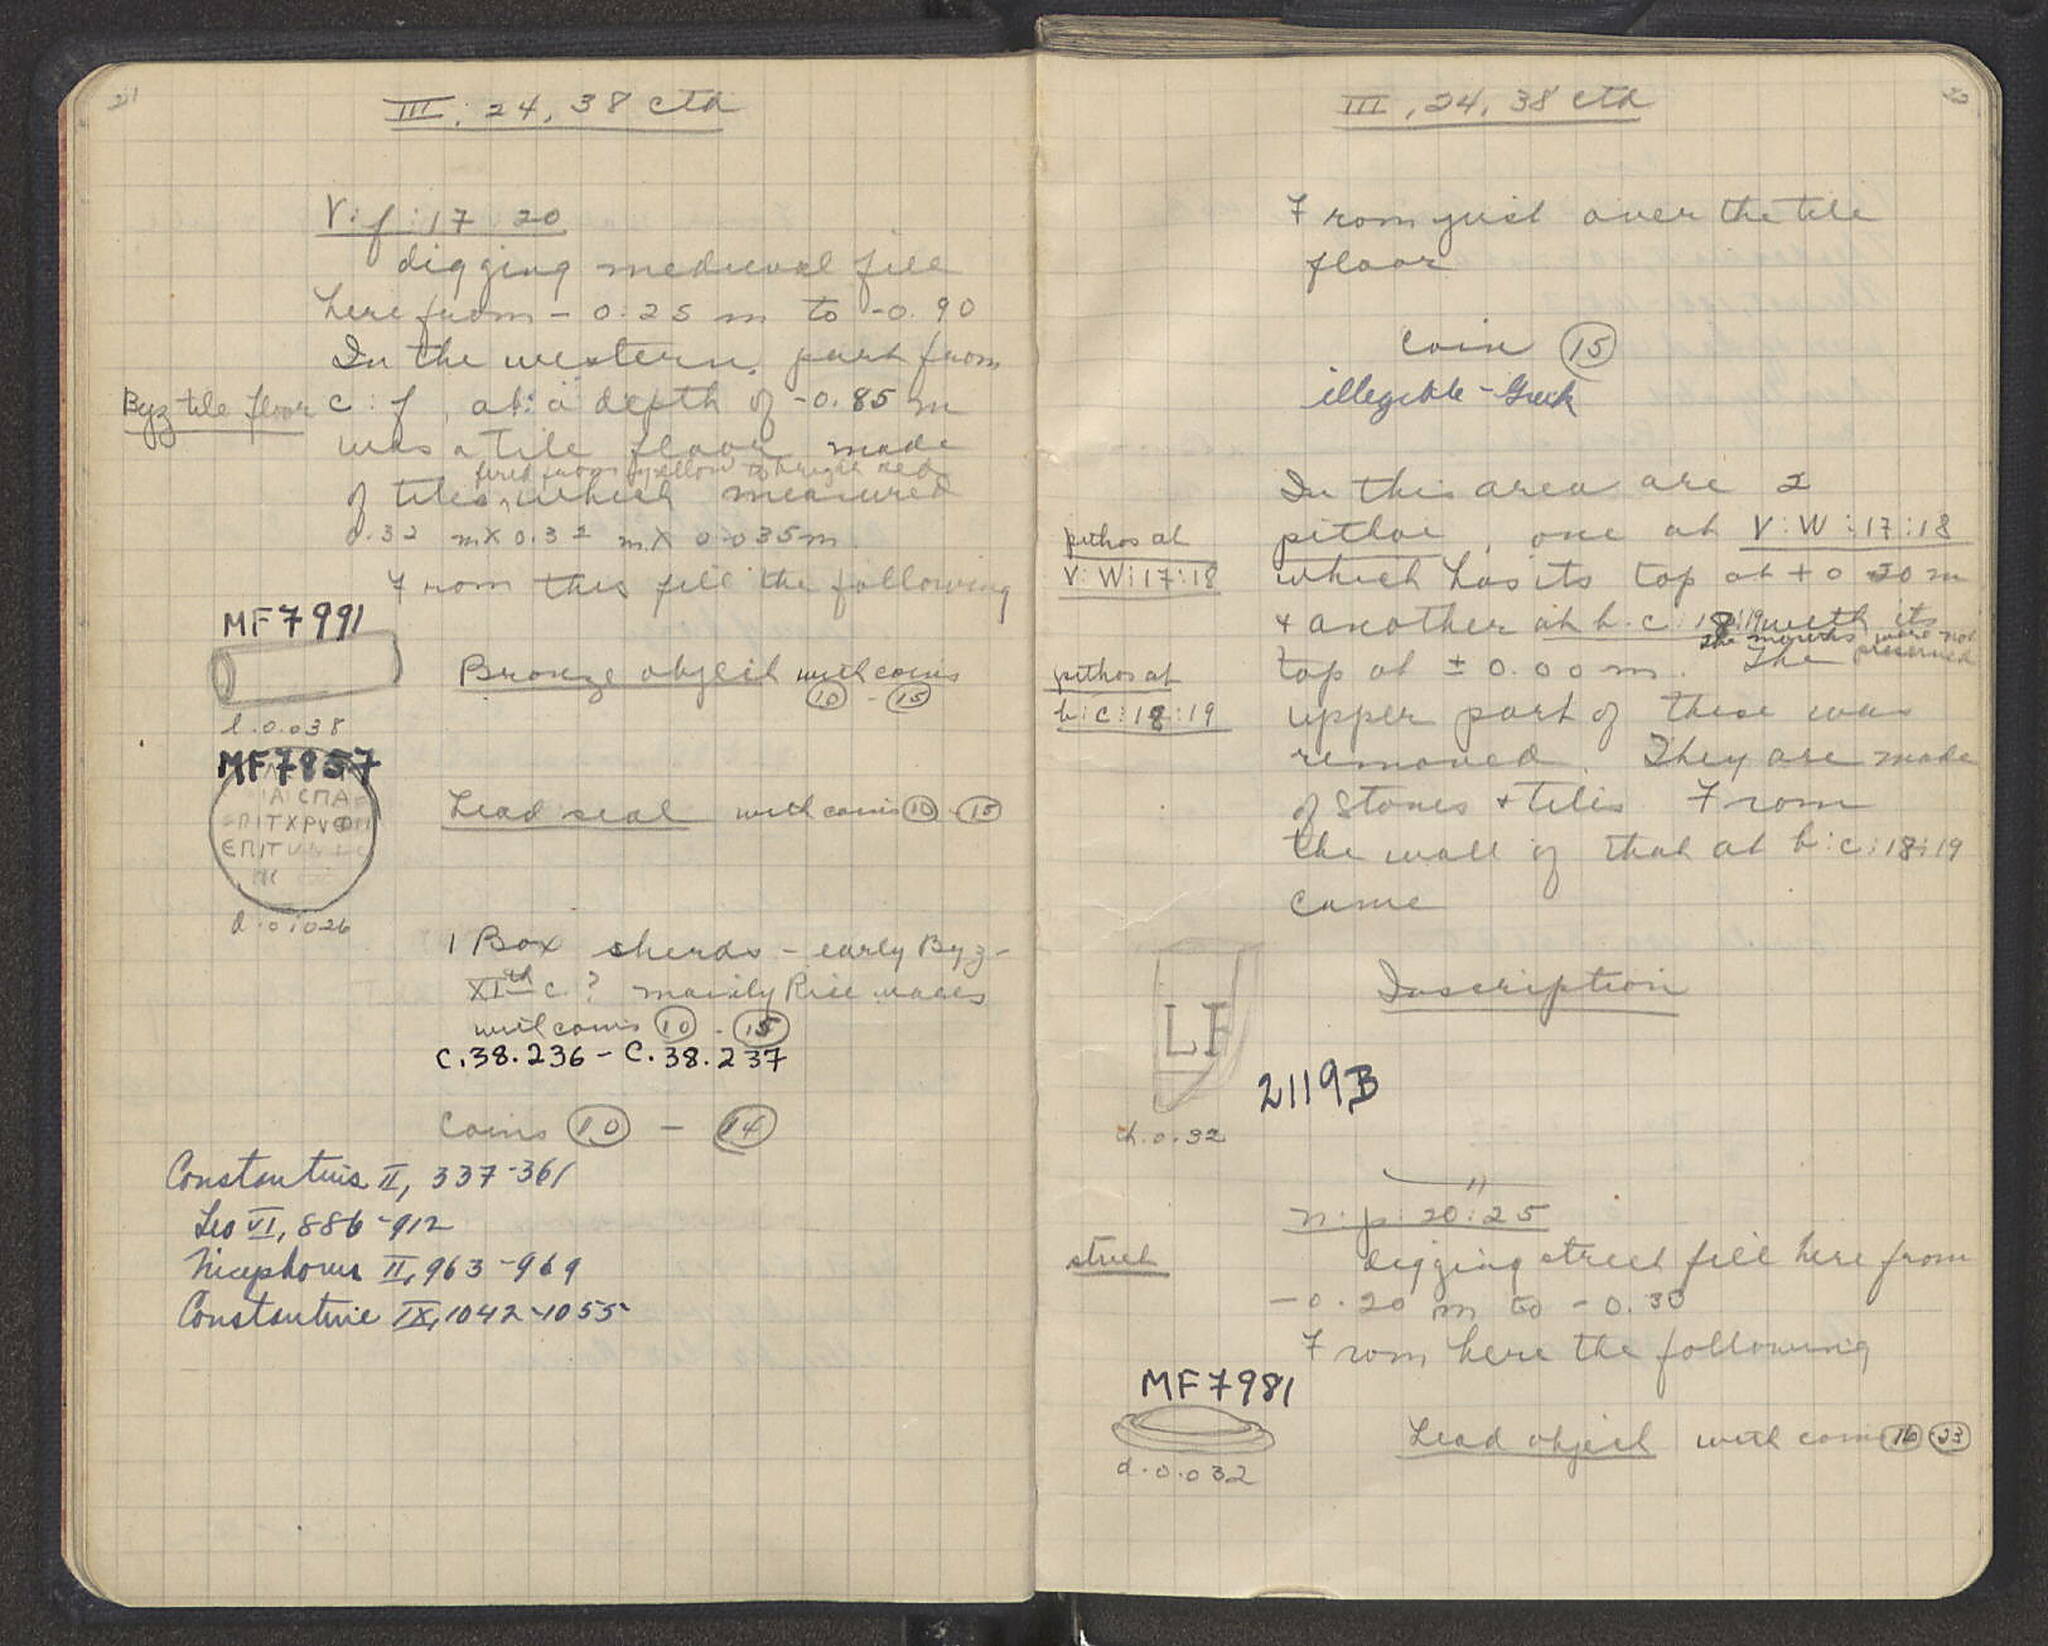 21
III, 24, 38 ctd
V:f:17:20
digging medieval fill
here from - 0.25 m to -0.90
In the western part from
Byz tile floor
c:f, at a depth of -0.85 m
was a tile floor made
fired from yellow to bright red
of tiles, which measured
0.32 m x 0.32 m x 0.035m.
From this fill the following
MF7991
Bronze object with coins
10 - 15
l.0.038
MF7857
ΙΑСΠΑ
ΠΙΤΧΡVΦ
ЄΠΙΤ
Lead seal with coins 10 - 15
d.0.026
1 Box sherds - early Byz -
XIth c.? mainly Rice wares
with coins 10 - 15
C.38.236 - C.38.237
Coins 10 - 14
Constantius II, 337-361
Leo VI, 886-912
Nicephorus II, 963-969
Constantine IX, 1042-1055
22
III, 24, 38 ctd
From just over the tile
floor
coin 15
illegible - Greek
In this area are 2
pithos at
V:W:17:18
pithoi, one at V:W:17:18
which has its top at +0.20 m
& another at b:c:18:19 with its
the mouths were not
preserved
pithos at
b:c:18:19
top at ± 0.00 m. The
upper part of these was
removed. They are made
of stones & tiles From
the wall of that at b:c:18:19
came
Inscription
LF
2119B
h.0.32
n:p:20:25
street
digging street fill here from
-0.20 m to -0.30
From here the following
MF7981
Lead object with coins 16 23
d.0.032